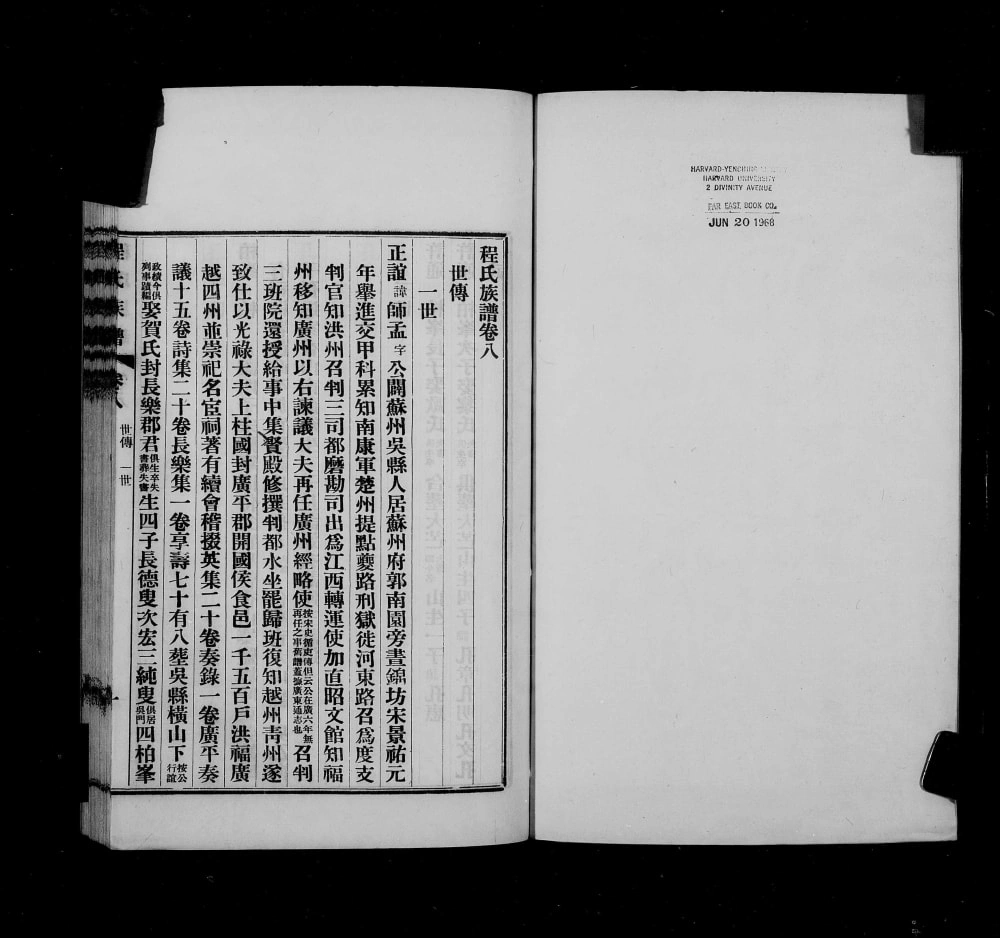 HARVARD-YENCHING
HARVARD UNIVERSITY
2 DIVINITY AVENUE
FAR EAST BOOK CO.
JUN 20 1968
程氏族譜卷八
世傳
一世
正誼諱師孟字公闢蘇州吳縣人居蘇州府郭南園旁晝錦坊宋景祐元
年舉進交甲科累知南康軍楚州提點夔路刑獄徙河東路召爲度支
判官知洪州召判三司都磨勘司出爲江西轉運使加直昭文館知福
州移知廣州以右諫議大夫再任廣州經略使按宋史循吏傳但云公在廣六年無再任之事舊譜蓋據廣東通志也召判
三班院還授給事中集賢殿修撰判都水坐罷歸班復知越州靑州遂
致仕以光祿大夫上柱國封廣平郡開國侯食邑一千五百戶洪福廣
越四州並崇祀名宦祠著有續會稽掇英集二十卷奏錄一卷廣平奏
議十五卷詩集二十卷長樂集一卷享壽七十有八塟吳縣橫山下按公行誼
政績今俱列事蹟編娶賀氏封長樂郡君俱生卒失書葬失書生四子長德叟次宏三純叟俱居吳門四柏峯
程氏族譜
卷八
世傳 一世
一